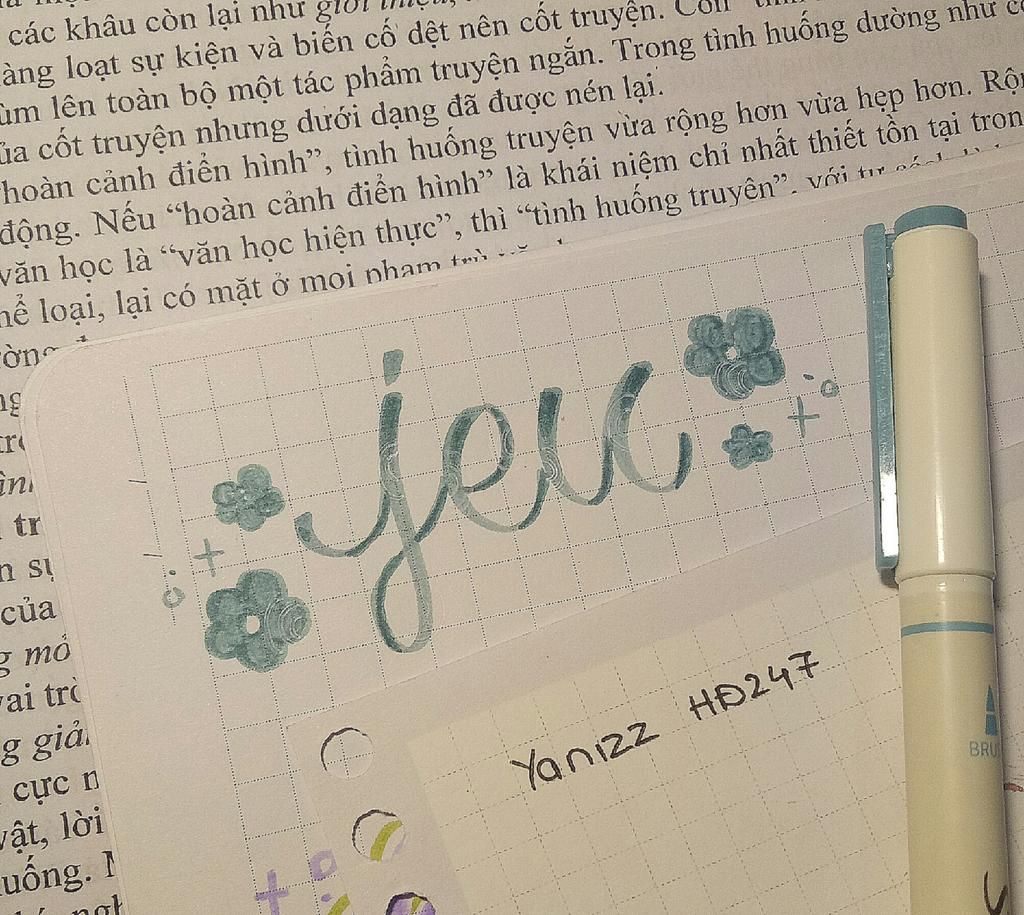 các khâu còn lại như giới thiệu,
àng loạt sự kiện và biến cố dệt nên cốt truyện. Còn
ùm lên toàn bộ một tác phẩm truyện ngắn. Trong tình huống dường như
ủa cốt truyện nhưng dưới dạng đã được nén lại.
hoàn cảnh điển hình”, tình huống truyện vừa rộng hơn vừa hẹp hơn. Rộn
động. Nếu “hoàn cảnh điển hình” là khái niệm chỉ nhất thiết tồn tại tron
văn học là “văn học hiện thực”, thì “tình huống truyện”, với tư cách là
hể loại, lại có mặt ở mọi phạm trù văn
ường
tr
n sự
của
g mở
vai trò
g giả
cực n
vật, lời
uống. N
jeu
Yanizz HĐ247
BRU